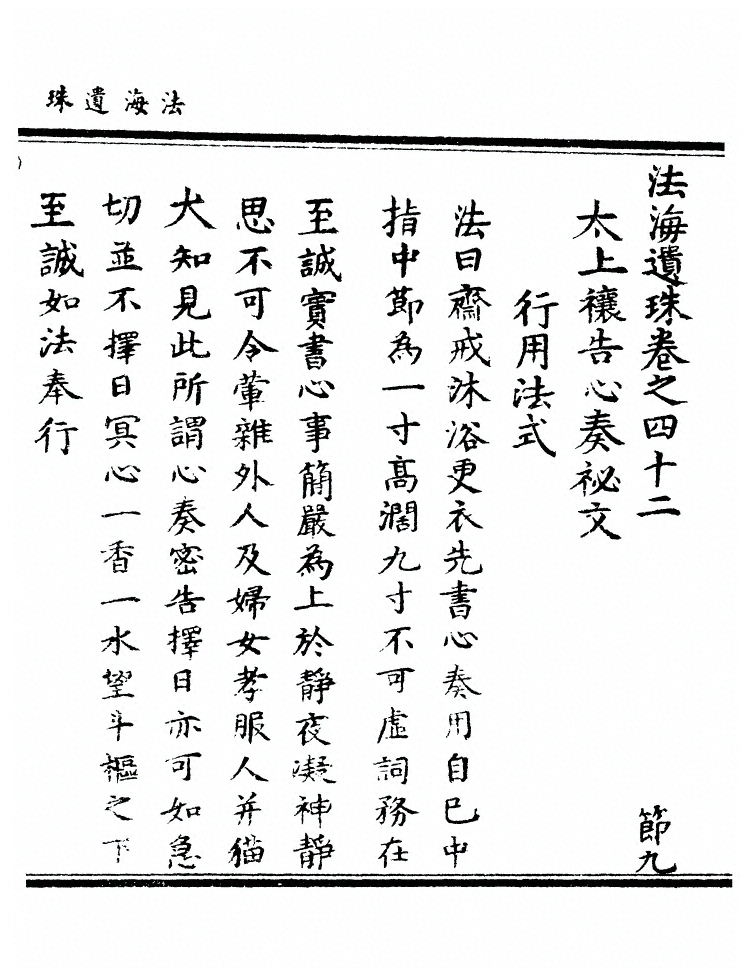 法海遺珠
法海遺珠卷之四十二
節九
太上禳告心奏祕文
行用法式
法曰齋戒沐浴更衣先書心奏用自巳中
指中節為一寸高濶九寸不可虛詞務在
至誠實書心事簡嚴為上於靜夜凝神靜
思不可令葷雜外人及婦女孝服人并猫
犬知見此所謂心奏密告擇日亦可如急
切並不擇日冥心一香一水望斗樞之下
至誠如法奉行